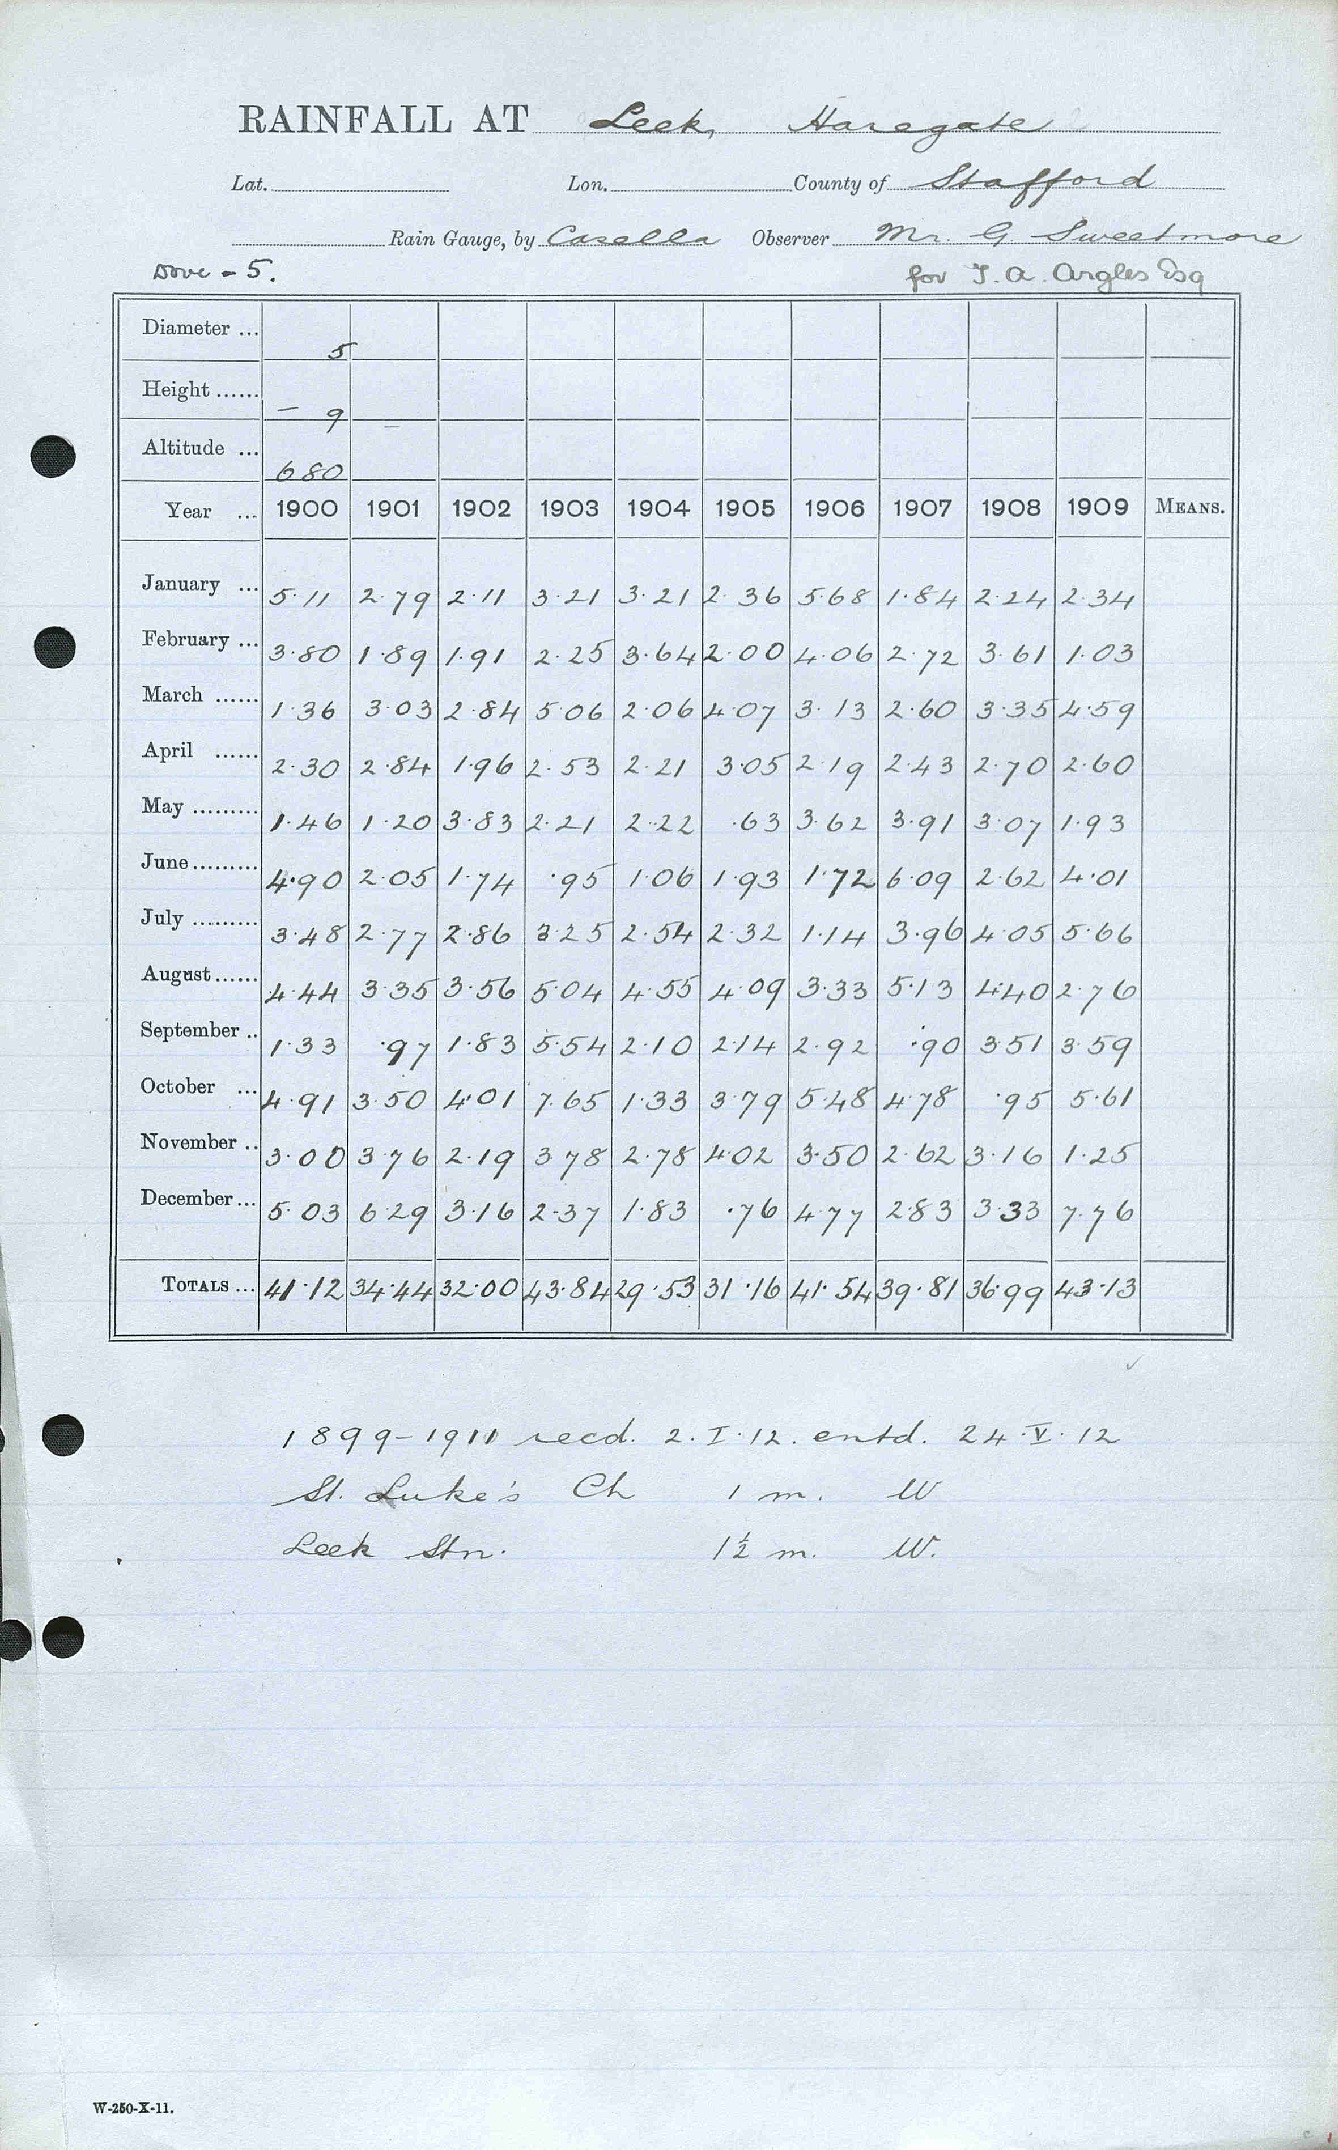 RAINFALL AT Leek, Haregate
Lat. Lon. County of Stafford
Rain Gauge, by Casella Observer Mr. G. Sweetmore
Dove - 5. for T. A. Argles Esq
Diameter ... 5
Height ...... - 9
Altitude ... 680
Year ... 1900 1901 1902 1903 1904 1905 1906 1907 1908 1909 MEANS.
January ... 5.11 2.79 2.11 3.21 3.21 2.36 5.68 1.84 2.24 2.34
February ... 3.80 1.89 1.91 2.25 3.64 2.00 4.06 2.72 3.61 1.03
March ...... 1.36 3.03 2.84 5.06 2.06 4.07 3.13 2.60 3.35 4.59
April ...... 2.30 2.84 1.96 2.53 2.21 3.05 2.19 2.43 2.70 2.60
May ......... 1.46 1.20 3.83 2.21 2.22 .63 3.62 3.91 3.07 1.93
June ......... 4.90 2.05 1.74 .95 1.06 1.93 1.72 6.09 2.62 4.01
July ......... 3.48 2.77 2.86 3.25 2.54 2.32 1.14 3.96 4.05 5.66
August ...... 4.44 3.35 3.56 5.04 4.55 4.09 3.33 5.13 4.40 2.76
September .. 1.33 .97 1.83 5.54 2.10 2.14 2.92 .90 3.51 3.59
October ... 4.91 3.50 4.01 7.65 1.33 3.79 5.48 4.78 .95 5.61
November .. 3.00 3.76 2.19 3.78 2.78 4.02 3.50 2.62 3.16 1.25
December ... 5.03 6.29 3.16 2.37 1.83 .76 4.77 2.83 3.33 7.76
TOTALS ... 41.12 34.44 32.00 43.84 29.53 31.16 41.54 39.81 36.99 43.13
1899-1911 recd. 2.I.12. entd. 24.V.12
St. Luke's Ch 1 m. W
Leek Stn. 1½ m. W.
W-250-X-11.